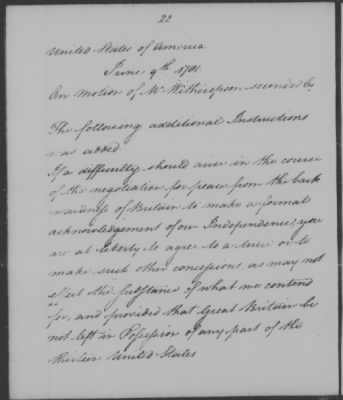 22
United States of America
June 9th 1781
On motion of Mr Witherspoon seconded by
The following additional Instructions
was added
If a difficulty should arise in the course
of the negotiation for peace from the back
wardness of Britain to make a formal
acknowledgement of our Independence, you
are at liberty to agree to a truce or to
make such other concessions, as may not
affect the substance of what we contend
for, and provided that Great Britain be
not left in Possession of any part of the
thirteen United States